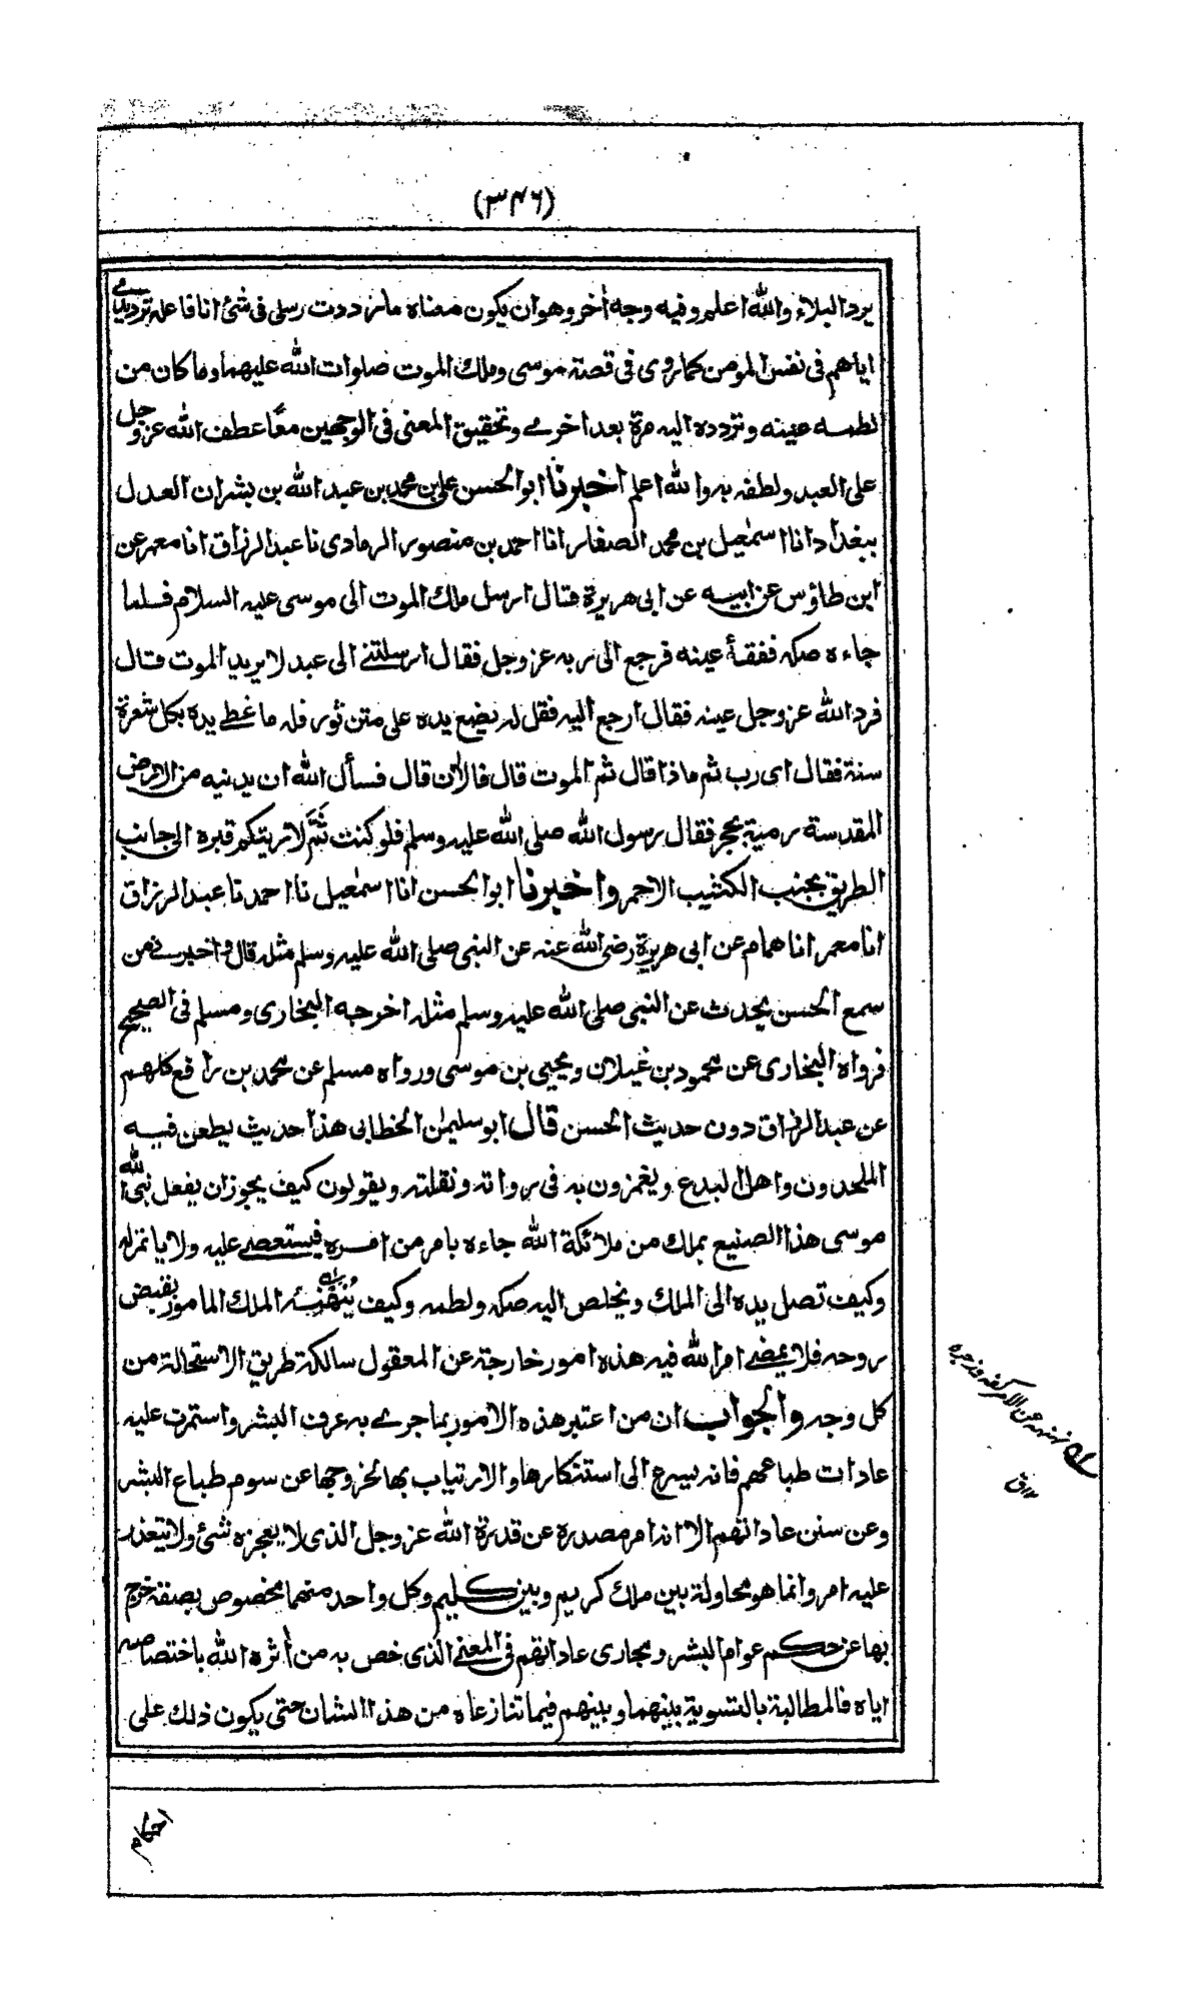 (٣٤٦)
يرد البلاء والله اعلم وفيه وجه أخر وهو ان يكون معناه ما رددت رسلى فى شئ انا فاعله ترديدى
اياهم فى نفس المومن كما روى فى قصة موسى وملك الموت صلوات الله عليهما وما كان من
لطمه عينه وتردده اليه مرة بعد اخرى وتحقيق المعنى فى الوجهين معًا عطف الله عز وجل
على العبد ولطفه به والله اعلم اخبرنا ابو الحسن على بن محمد بن عبد الله بن بشران العدل
ببغداد انا اسمٰعيل بن محمد الصفار انا احمد بن منصور الرمادى نا عبد الرزاق انا معمر عن
ابن طاؤس عن ابيه عن ابى هريرة قال ارسل ملك الموت الى موسى عليه السلام فلما
جاءه صكه ففقأ عينه فرجع الى ربه عز وجل فقال ارسلتنى الى عبد لا يريد الموت قال
فرد الله عز وجل عينه فقال ارجع اليه فقل له يضع يده على متن ثور فله ما غطى يده بكل شعرة
سنة فقال اى رب ثم ماذا قال ثم الموت قال فالأن قال فسأل الله ان يدنيه من الارض
المقدسة رمية بحجر فقال رسول الله صلى الله عليه وسلم فلو كنت ثَمَّ لاريتكم قبره الى جانب
الطريق بجنب الكثيب الاحمر واخبرنا ابو الحسن انا اسمٰعيل نا احمد نا عبد الرزاق
انا معمر انا همام عن ابى هريرة رضى الله عنه عن النبى صلى الله عليه وسلم مثله قال واخبرنى من
سمع الحسن يحدث عن النبى صلى الله عليه وسلم مثله اخرجه البخارى ومسلم فى الصحيح
فرواه البخارى عن محمود بن غيلان ويحيى بن موسى ورواه مسلم عن محمد بن رافع كلهم
عن عبد الرزاق دون حديث الحسن قال ابو سليمٰن الخطابى هذا حديث يطعن فيه
الملحدون واهل البدع ويغمزون به فى رواته ونقلته ويقولون كيف يجوز ان يفعل نبى الله
موسى هذا الصنيع بملك من ملائكة الله جاءه بامر من امره فيستعصى عليه ولا ياتمر له
وكيف تصل يده الى الملك ويخلص اليه صكه ولطمه وكيف يُنَهْنِهُه الملك المامور بقبض
روحه فلا يمضى امر الله فيه هذه امور خارجة عن المعقول سالكة طريق الاستحالة من
كل وجه والجواب ان من اعتبر هذه الامور بما جرى به عرف البشر واستمرت عليه
عادات طباعهم فانه يسرع الى استنكارها والارتياب بها لخروجها عن سوم طباع البشر
وعن سنن عاداتهم الا انه امر مصدره عن قدرة الله عز وجل الذى لا يعجزه شئ ولا يتعذر
عليه امر وانما هو محاولة بين ملك كريم وبين كليم وكل واحد منهما مخصوص بصفة خرج
بها عن حكم عوام البشر ومجارى عاداتهم فى المعنى الذى خص به من أثره الله باختصاصه
اياه فالمطالبة بالتسوية بينهما وبينهم فيما تنازعاه من هذا الشان حتى يكون ذلك على
نهنهه عن الامر كفه وزجره
احكام